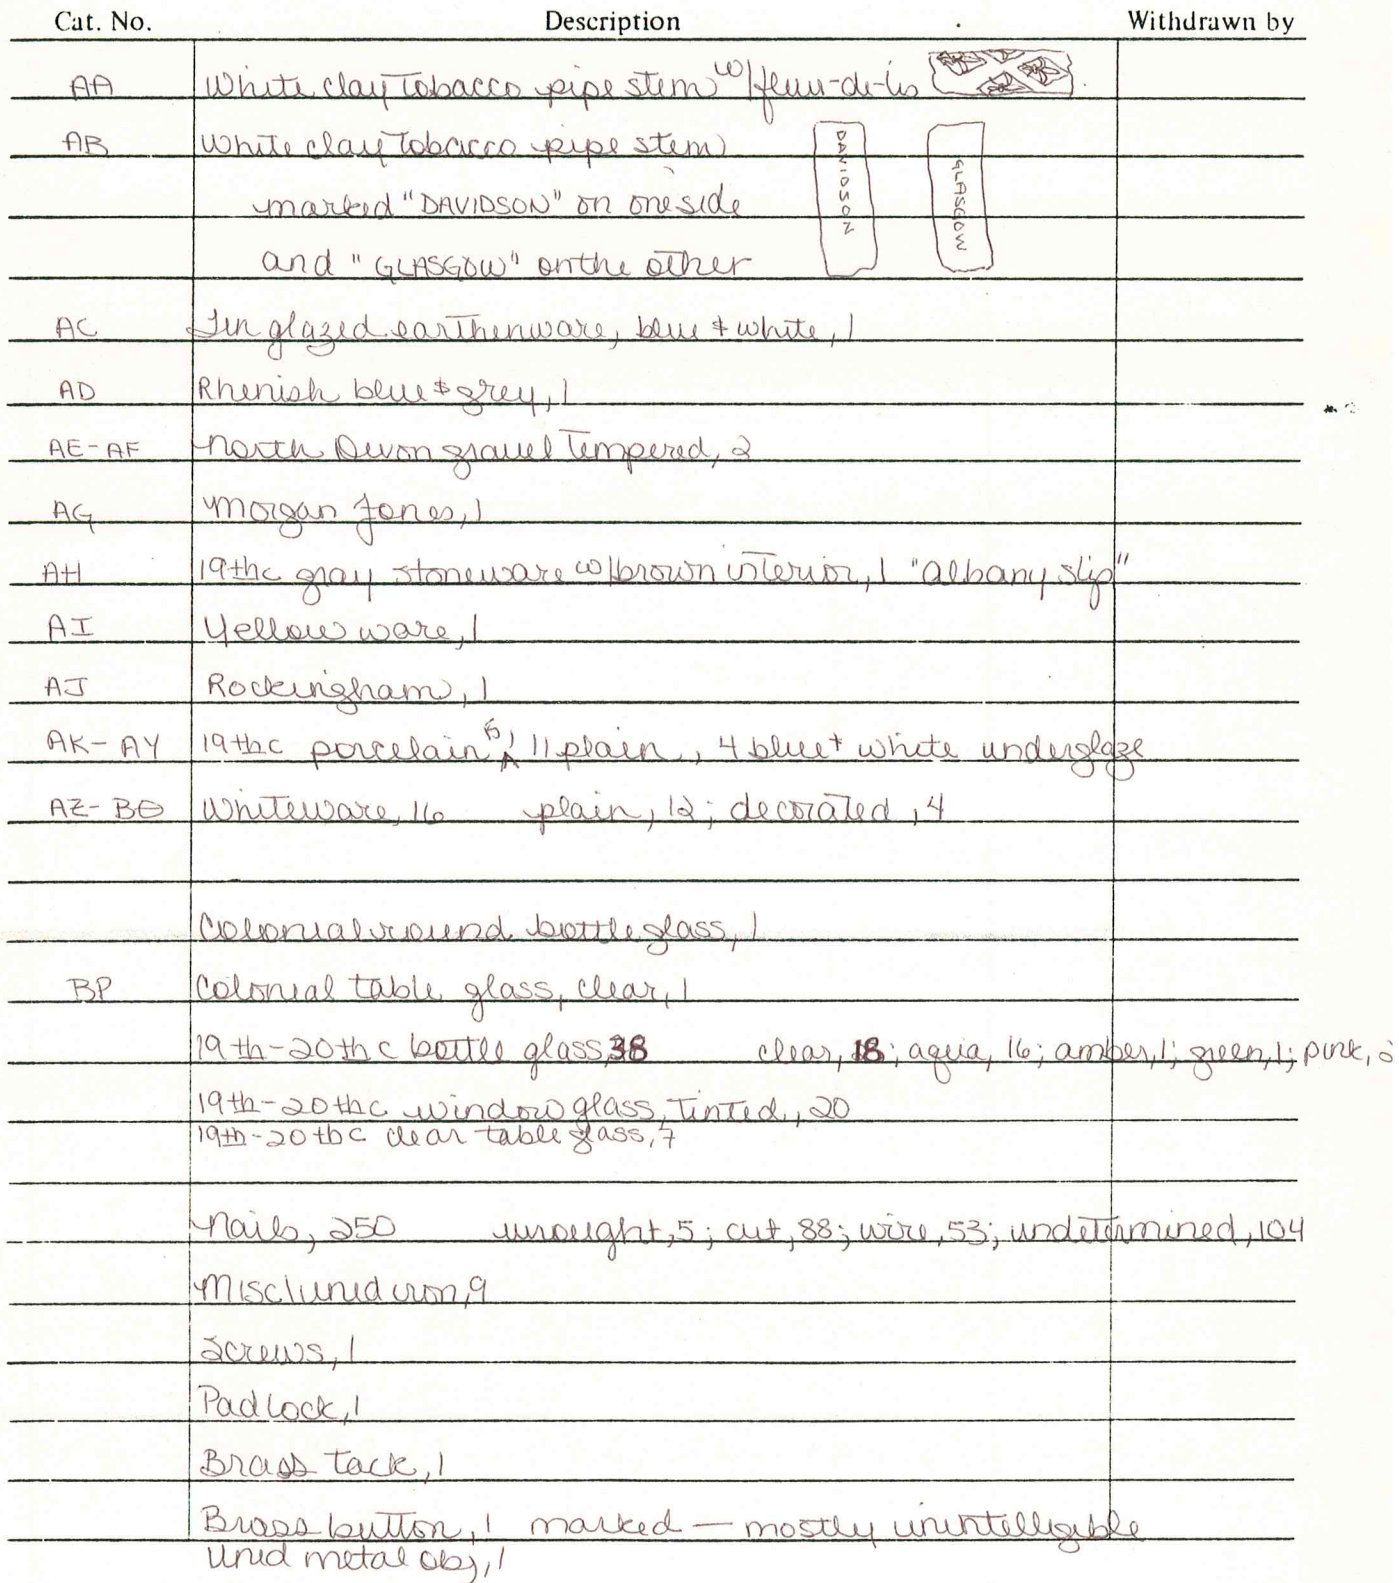 Cat. No. Description Withdrawn by
AA White clay Tobacco pipe stem w/fleur-de-lis
AB White clay Tobacco pipe stem
DAVIDSON
GLASGOW
marked "DAVIDSON" on one side
and "GLASGOW" on the other
AC Tin glazed earthenware, blue & white, 1
AD Rhenish blue & grey, 1
AE-AF North Devon gravel Tempered, 2
AG Morgan Jones, 1
AH 19thc gray stoneware w/brown interior, 1 "albany slip"
AI Yellow ware, 1
AJ Rockingham, 1
AK-AY 19thc porcelain, 11 plain, 4 blue + white underglaze
AZ-BO Whiteware, 16 plain, 12; decorated, 4
Colonial round bottle glass, 1
BP Colonial table glass, clear, 1
19th-20thc bottle glass, 38 clear, 18; aqua, 16; amber, 1; green, 1; pink,
19th-20thc window glass, Tinted, 20
19th-20thc clear table glass, 7
Nails, 250 wrought, 5; cut, 88; wire, 53; undetermined, 104
Misc/unid iron, 9
Screws, 1
Padlock, 1
Brass tack, 1
Brass button, 1 marked — mostly unintelligible
Unid metal obj, 1